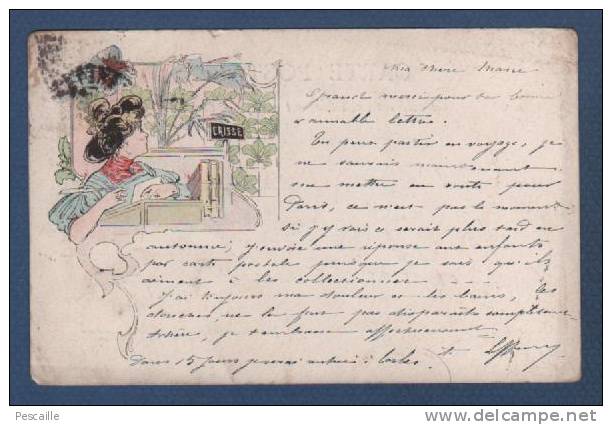 Ma chère Marie
Grand merci pour ta bonne
& aimable lettre.
Tu peux partir en voyage, je
ne saurais maintenant
me mettre en route pour
Paris, ce n'est pas le moment
si j'y vais ce serais plus tard en
automne; j'envoie une réponse aux enfants
par carte postale puisque je sais qu'ils
aiment à les collectionner
J'ai toujours ma douleur et les bains, les
douches, ne la font pas disparaître complètement
je t'embrasse affectueusement
Dans 15 jours je serai à
CAISSE
Pescaille
www.delcampe.net